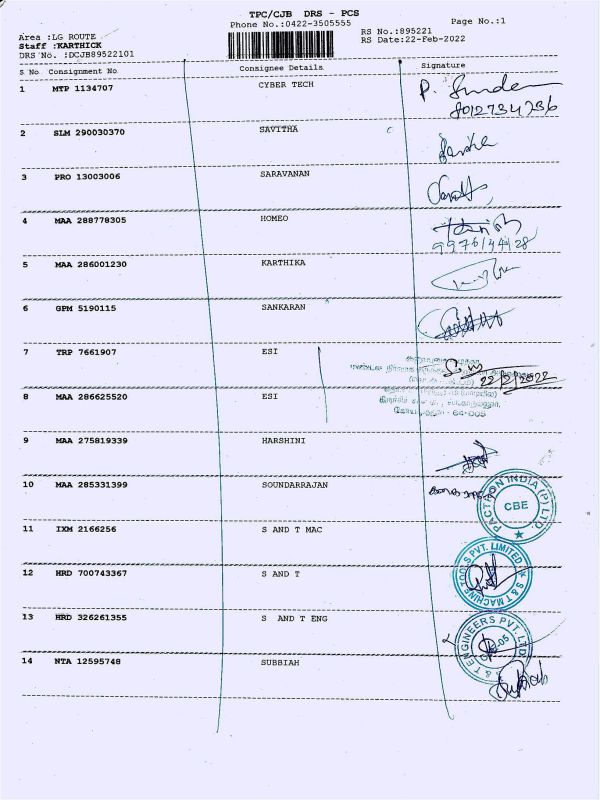 TPC/CJB DRS - PCS
Phone No.:0422-3505555
Page No.:1
Area :LG ROUTE
RS No.:895221
Staff :KARTHICK
RS Date:22-Feb-2022
DRS No. :DCJB89522101
S No Consignment No Consignee Details Signature
1 MTP 1134707 CYBER TECH
8012734236
2 SLM 290030370 SAVITHA
3 PRO 13003006 SARAVANAN
4 MAA 288778305 HOMEO
9976144128
5 MAA 286001230 KARTHIKA
6 GPM 5190115 SANKARAN
7 TRP 7661907 ESI
22/2/2022
8 MAA 286625520 ESI
9 MAA 275819339 HARSHINI
10 MAA 285331399 SOUNDARRAJAN
PACTRON INDIA (P) LTD.
CBE
11 IXM 2166256 S AND T MAC
12 HRD 700743367 S AND T
S & T MACHINE TOOLS PVT. LIMITED
13 HRD 326261355 S AND T ENG
S & T ENGINEERS PVT. LTD.
14 NTA 12595748 SUBBIAH